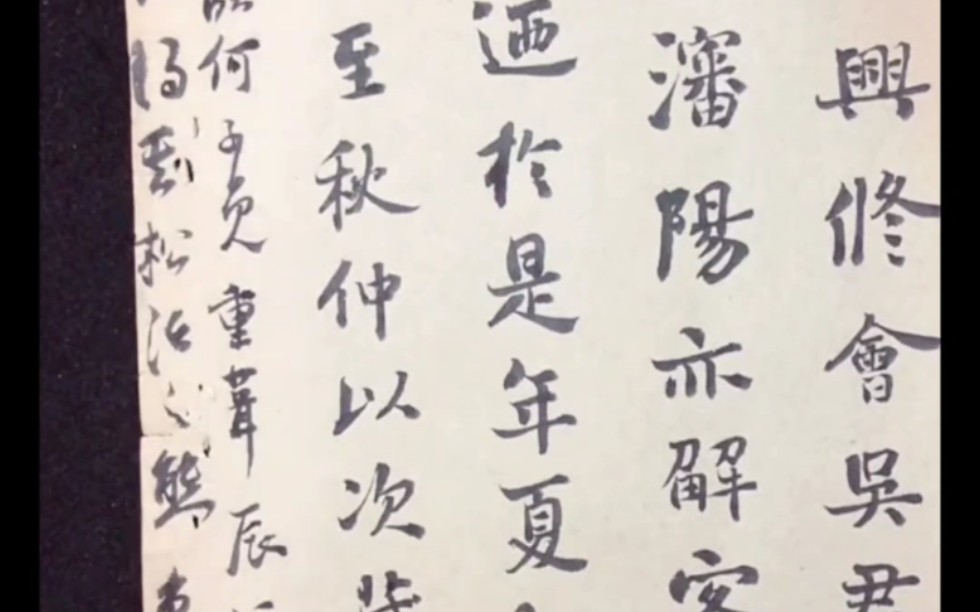 興修會吳君
瀋陽亦解客
迺於是年夏
至秋仲以次
何子貞重葺辰
松 熊